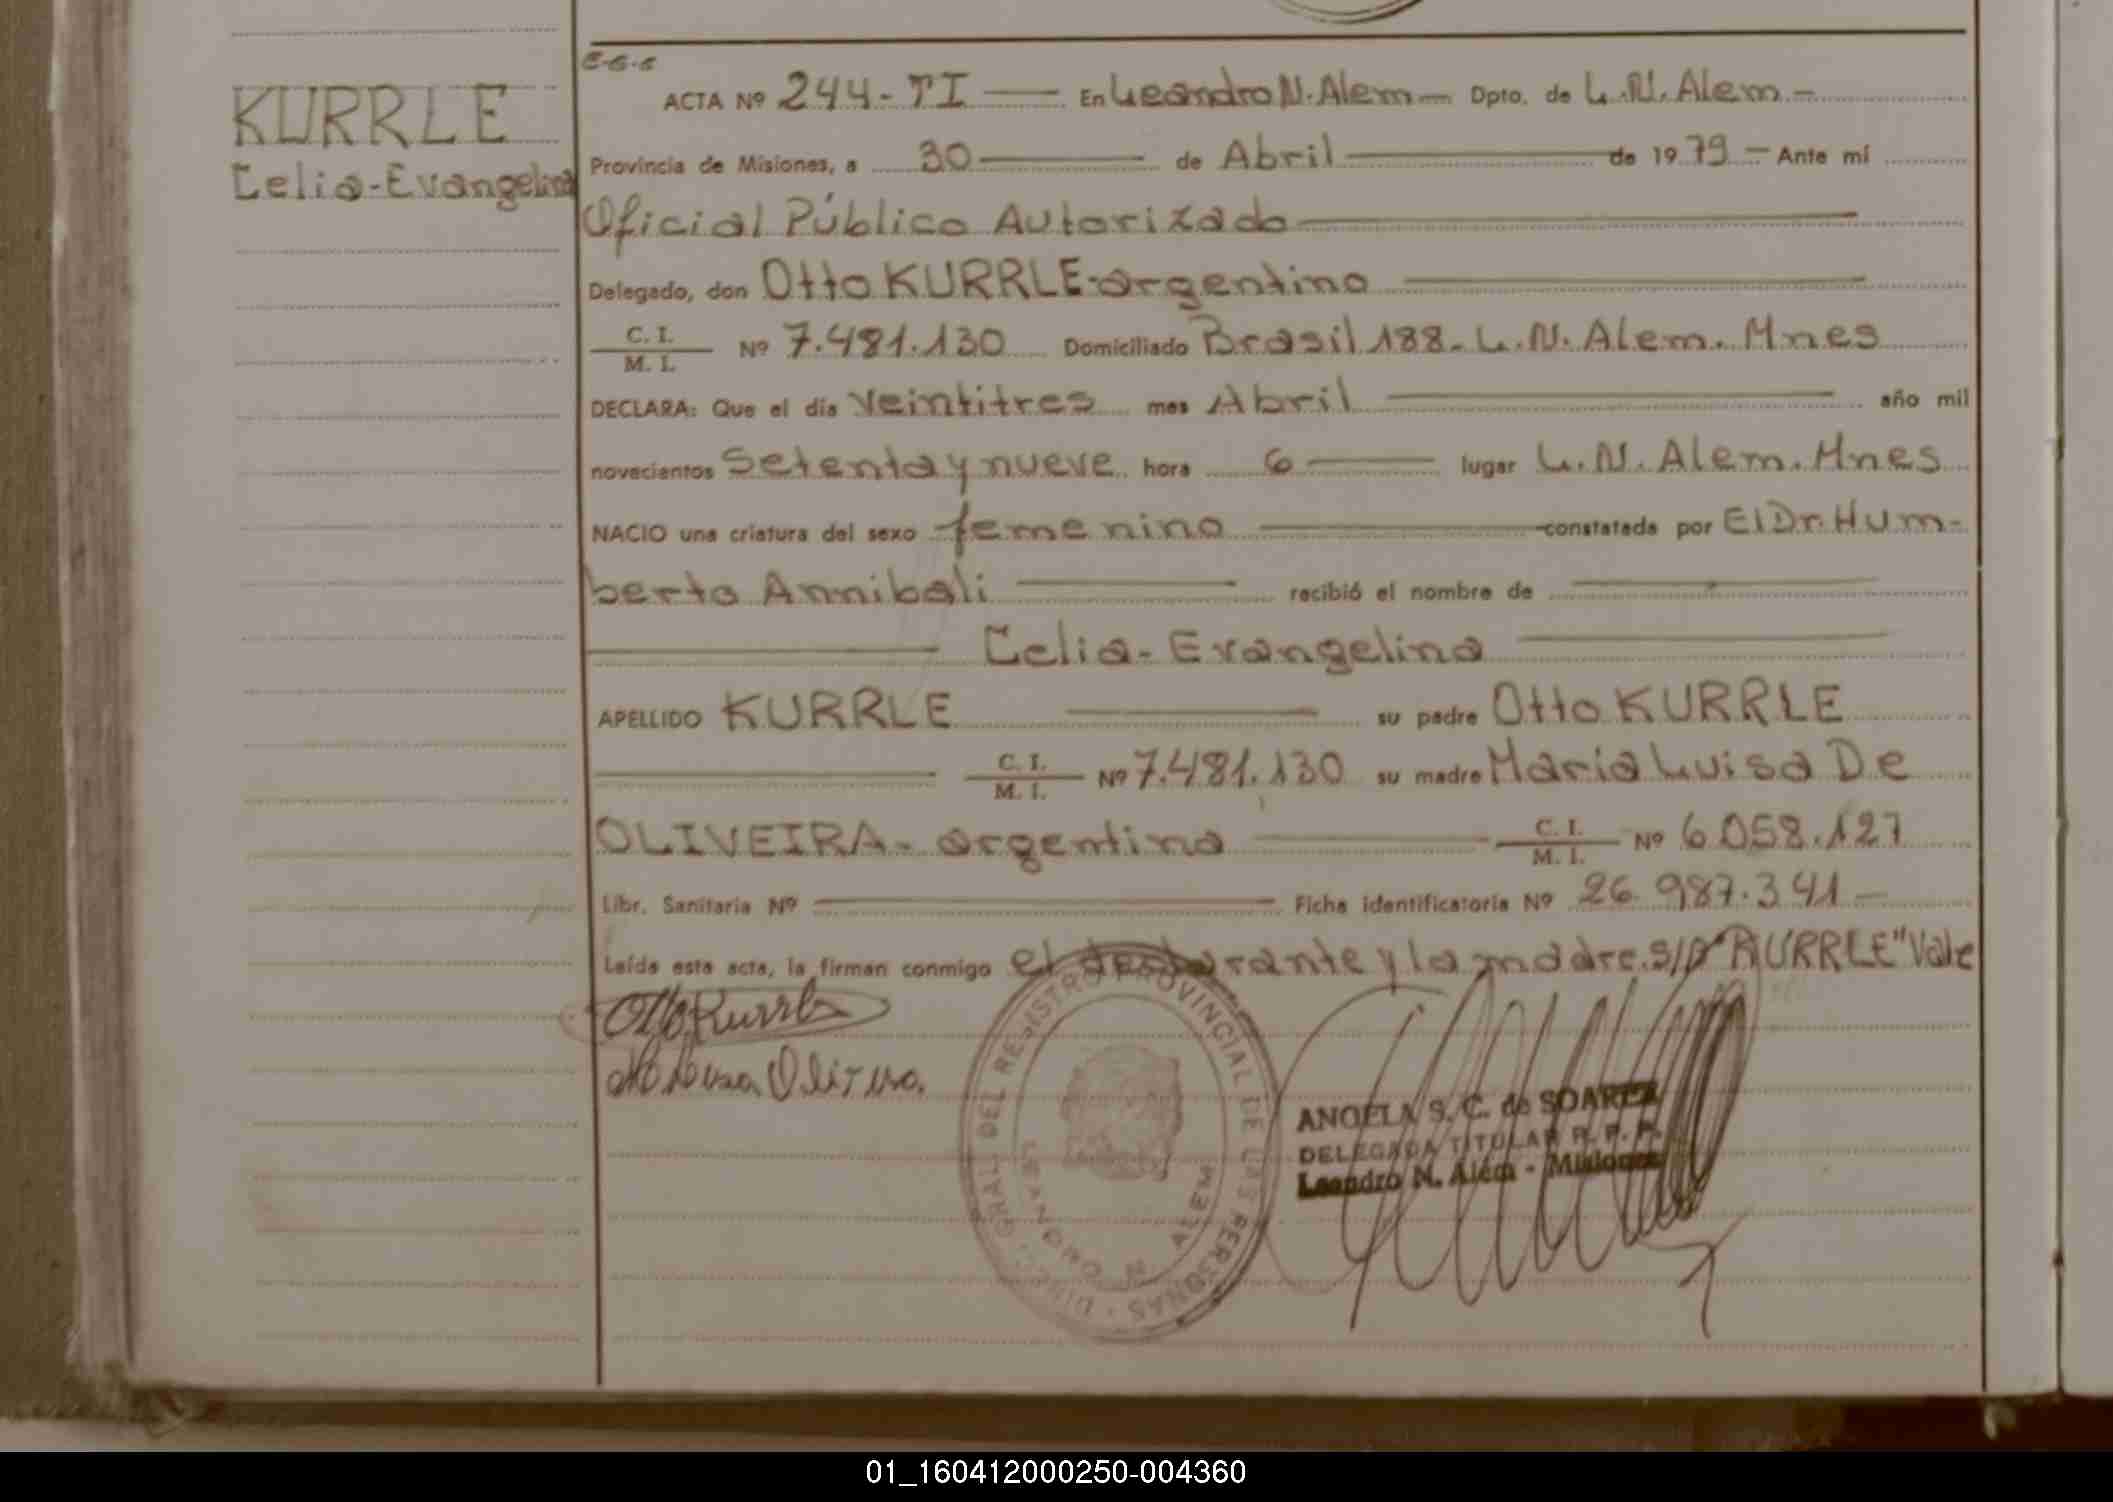 KURRLE
Celia-Evangelina
E-G-G
ACTA Nº 244-TI En Leandro N. Alem Dpto. de L.N. Alem
Provincia de Misiones, a 30 de Abril de 1979 Ante mí
Oficial Público Autorizado
Delegado, don Otto KURRLE-argentino
C. I. / M. I. Nº 7.481.130 Domiciliado Brasil 188-L.N. Alem. Mnes
DECLARA: Que el día Veintitres mes Abril año mil
novecientos Setenta y nueve hora 6 lugar L.N. Alem. Mnes
NACIO una criatura del sexo femenino constatada por El Dr. Hum-
berto Annibali recibió el nombre de
Celia-Evangelina
APELLIDO KURRLE su padre Otto KURRLE
C. I. / M. I. Nº 7.481.130 su madre Maria Luisa De
OLIVEIRA-argentina C. I. / M. I. Nº 6.058.127
Libr. Sanitaria Nº Ficha identificatoria Nº 26.987.341
Leída esta acta, la firman conmigo el declarante y la madre. s/p "KURRLE" Vale
Otto Kurrle
DIREC. GRAL. DEL REGISTRO PROVINCIAL DE LAS PERSONAS
LEANDRO N. ALEM
ANGELA S. C. de SOAREZ
DELEGADA TITULAR R. P. P.
Leandro N. Além - Misiones
01_160412000250-004360